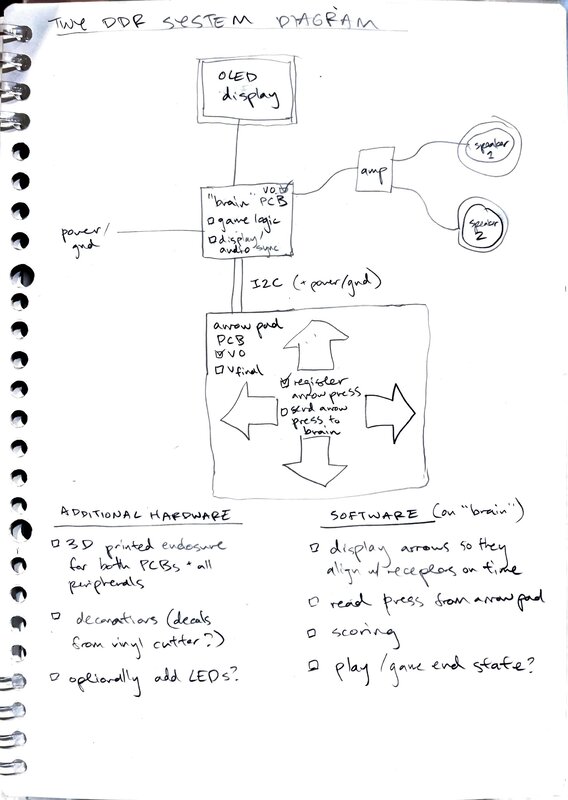 TINY DDR SYSTEM DIAGRAM
OLED
display
speaker
1
amp
"brain" V0
PCB
game logic
display/
audio sync
power/
gnd
speaker
2
I2C (+power/gnd)
arrow pad
PCB
V0
Vfinal
register
arrow press
send arrow
press to
brain
ADDITIONAL HARDWARE
3D printed enclosure
for both PCBs + all
peripherals
decorations (decals
from vinyl cutter?)
optionally add LEDs?
SOFTWARE (on "brain")
display arrows so they
align w/ receptors on time
read press from arrow pad
scoring
play/game end state?